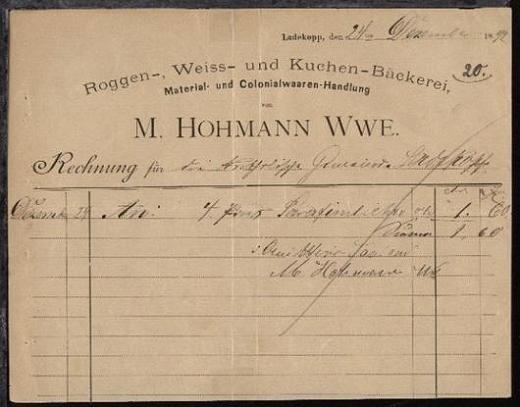 Ladekopp, den 24ten Dezember 1892
20.
Roggen-, Weiss- und Kuchen-Bäckerei,
Material- und Colonialwaaren-Handlung
von
M. HOHMANN WWE.
Rechnung für die katholische Gemeinde Ladekopp
Dezemb 24 An: 4 Parafinlichte 1. 60
Summa 1. 60
M. Hohmann Ww